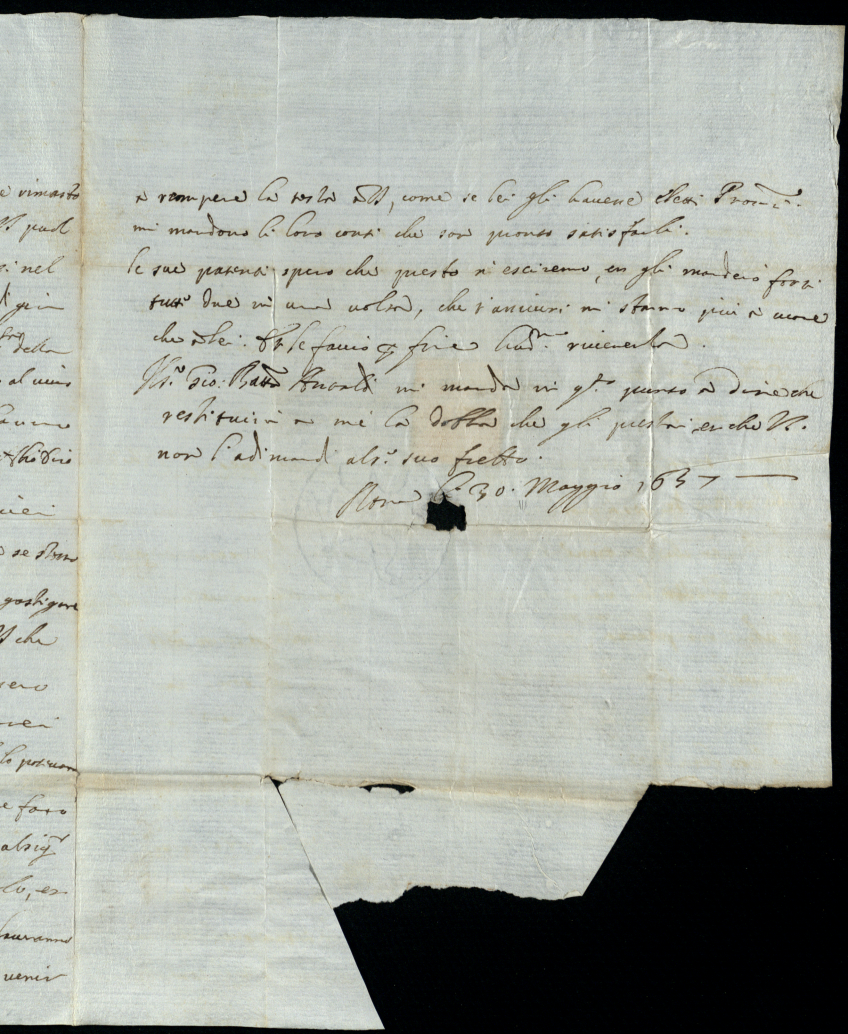 e rimasto
VS puol
si nel
di gia
della
al mio
se stesso
gastigare
VS che
lo possiamo
e farò
al sigr
lo, et
haveranno
venir
a rompere la testa a VS, come se lei gli havesse eletti Procri.
mi mandono li loro conti che son pronto satisfarli.
le sue patenti spero che presto ni esciremo, et gli manderò forsi
tutti due in una volta, che s'assicuri mi stanno più a cuore
che a lei. Et le faccio p fine hudma riverenza.
Il Sr Gio: Batta Ansaldi mi manda in qto punto a dire che
restituirà a me la dobla che gli prestai, et che VS.
non l'adimandi al Sr suo fratto.
Roma li 30. Maggio 1637